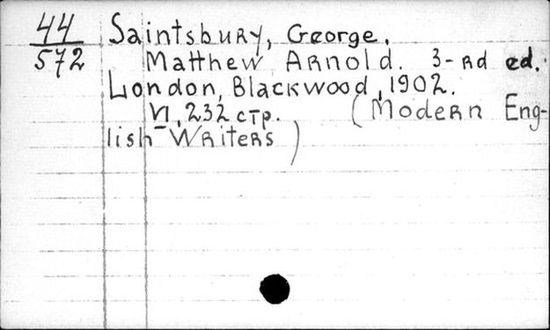 44 Saintsbury, George.
572 Matthew Arnold. 3-rd ed.
London, Blackwood, 1902.
VI, 232 стр. (Modern Eng-
lish Writers)